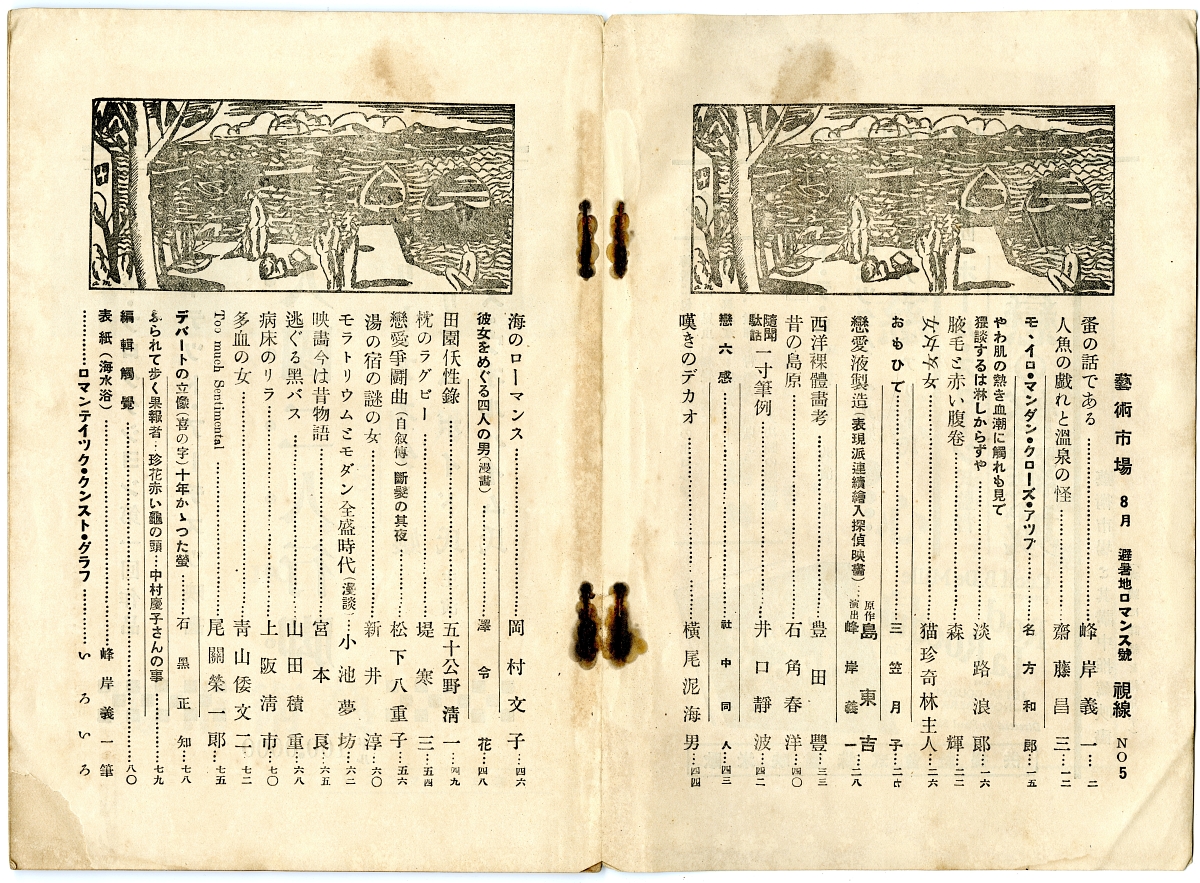 藝術市場 8月 避暑地ロマンス號 視線 NO5
蚤の話である………峰岸義一…二
人魚の戯れと溫泉の怪………齋藤昌三…一二
モ、イロ・マンダン・クローズ・アツプ………名方和郎…一五
やわ肌の熱き血潮に觸れも見で
猥談するは淋しからずや………淡路浪郎…一六
腋毛と赤い腹卷………森輝…二二
女女女女………猫珍奇林主人…二六
おもひで………三笠月子…二七
戀愛液製造(表現派連續繪入探偵映畵)…原作 島東吉 演出 峰岸義一…二八
西洋裸體畵考………豊田豊…三三
昔の島原………石角春洋…四〇
隨聞駄話 一寸筆例………井口靜波…四二
戀六感………社中同人…四三
嘆きのデカオ………橫尾泥海男…四四
海のローマンス………岡村文子…四六
彼女をめぐる四人の男(漫畵)………澤令花…四八
田園仸性錄………五十公野淸一…四九
枕のラグビー………堤寒三…五四
戀愛爭鬪曲(自叙傳)斷髮の其夜………松下八重子…五六
湯の宿の謎の女………新井淳…六〇
モラトリウムとモダン全盛時代(漫談)…小池夢坊…六二
映畵今は昔物語………宮本良…六五
逃ぐる黑バス………山田積重…六八
病床のリラ………上阪淸市…七〇
多血の女………靑山倭文二…七二
Too much Sentimental………尾關榮一郎…七五
デパートの立像(喜の字)十年かゝつた螢………石黑正知…七八
ふられて步く果報者…珍花赤い龜の頭…中村慶子さんの事………七九
編輯觸覺………八〇
表紙(海水浴)………峰岸義一筆
………ロマンテイツク・クンスト・グラフ………いろいろ